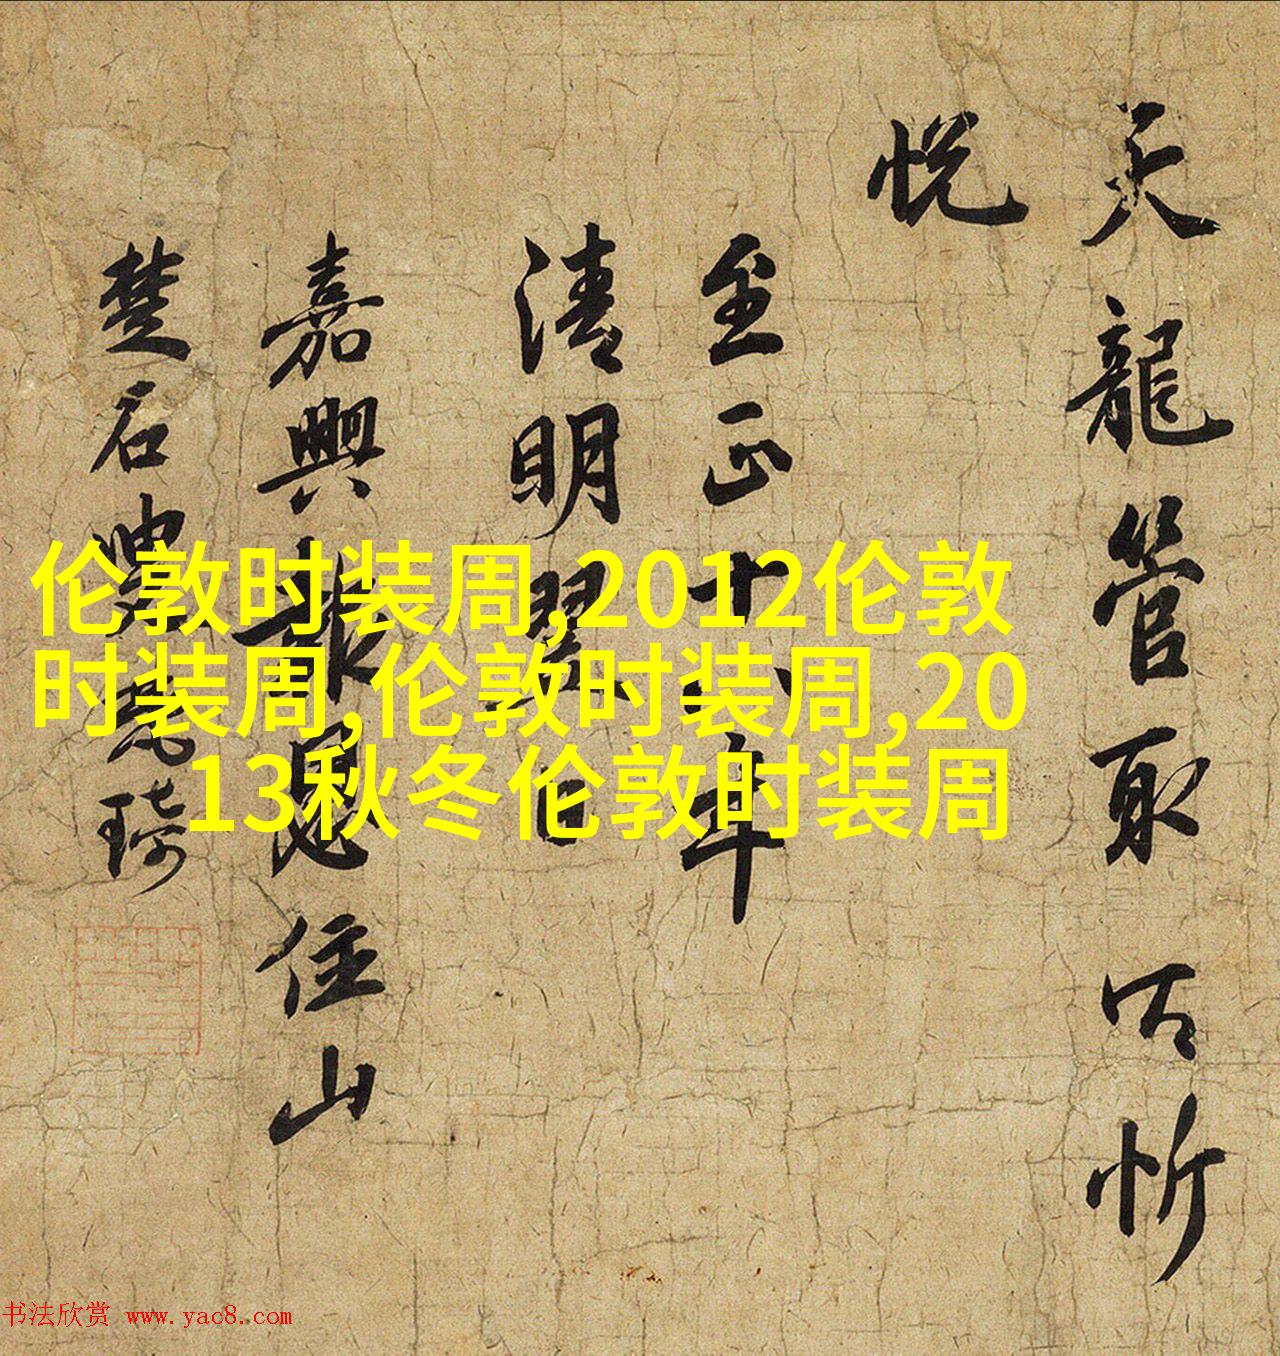 天龍管取以忻
悦
至正十六年
清明翌日
嘉興報恩住山
楚石叟梵琦
伦敦时装周,2012伦敦
时装周,伦敦时装周,20
13秋冬伦敦时装周
书法欣赏 www.yac8.com